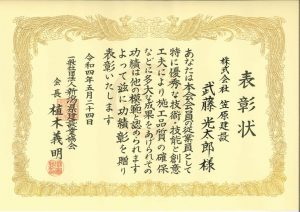 表彰状
株式会社 笠原建設
武藤光太郎様
あなたは本会会員の従業員として
特に優秀な技術・技能と創意
工夫により施工品質の確保
などに多大な成果をあげられその
功績は他の模範と認められます
よって茲に功績彰を贈り
表彰いたします
令和四年五月二十四日
一般社団法人 新潟県建設業協会
会長 植木義明